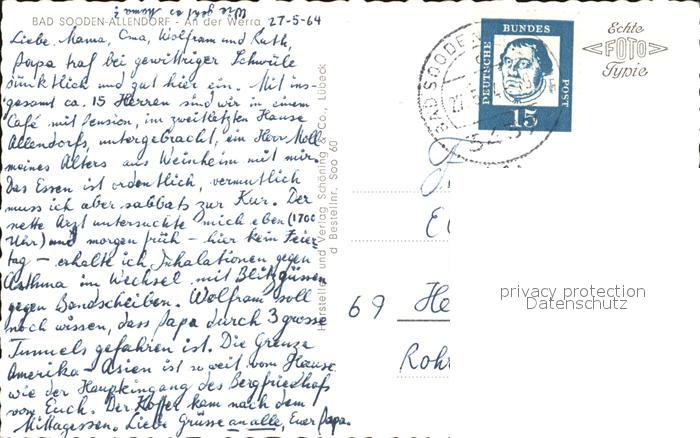 Wie geht es Mama?
BAD SOODEN-ALLENDORF - An der Werra 27-5-64
Liebe Mama, Oma, Wolfram und Ruth,
Papa traf bei gewittriger Schwüle
pünktlich und gut hier ein. Mit ins-
gesamt ca. 15 Herren sind wir in einem
Café mit Pension, im zweitletzten Hause
Allendorfs, untergebracht, ein Herr Moll
meines Alters aus Weinheim mit mir.
Das Essen ist ordentlich, vermutlich
muss ich aber selbst zur Kur. Der
nette Arzt untersuchte mich eben (17 00
Uhr) und morgen früh - hier kein Feier-
tag - erhalte ich Inhalationen gegen
Asthma im Wechsel mit Blitzgüssen
gegen Bandscheiben. Wolfram soll
noch wissen, dass Papa durch 3 grosse
Tunnels gefahren ist. Die Grenze
Amerika - Asien ist so weit vom Hause
wie der Haupteingang des Bergfriedhofs
von Euch. Der Koffer kam nach dem
Mittagessen. Liebe Grüsse an alle, Euer Papa.
Hersteller und Verlag Schöning & Co., Lübeck
Bestellnr. Soo 60
BAD SOODEN
DEUTSCHE BUNDES POST
15
Echte
FOTO
Typie
69 He
Rohr
privacy protection
Datenschutz